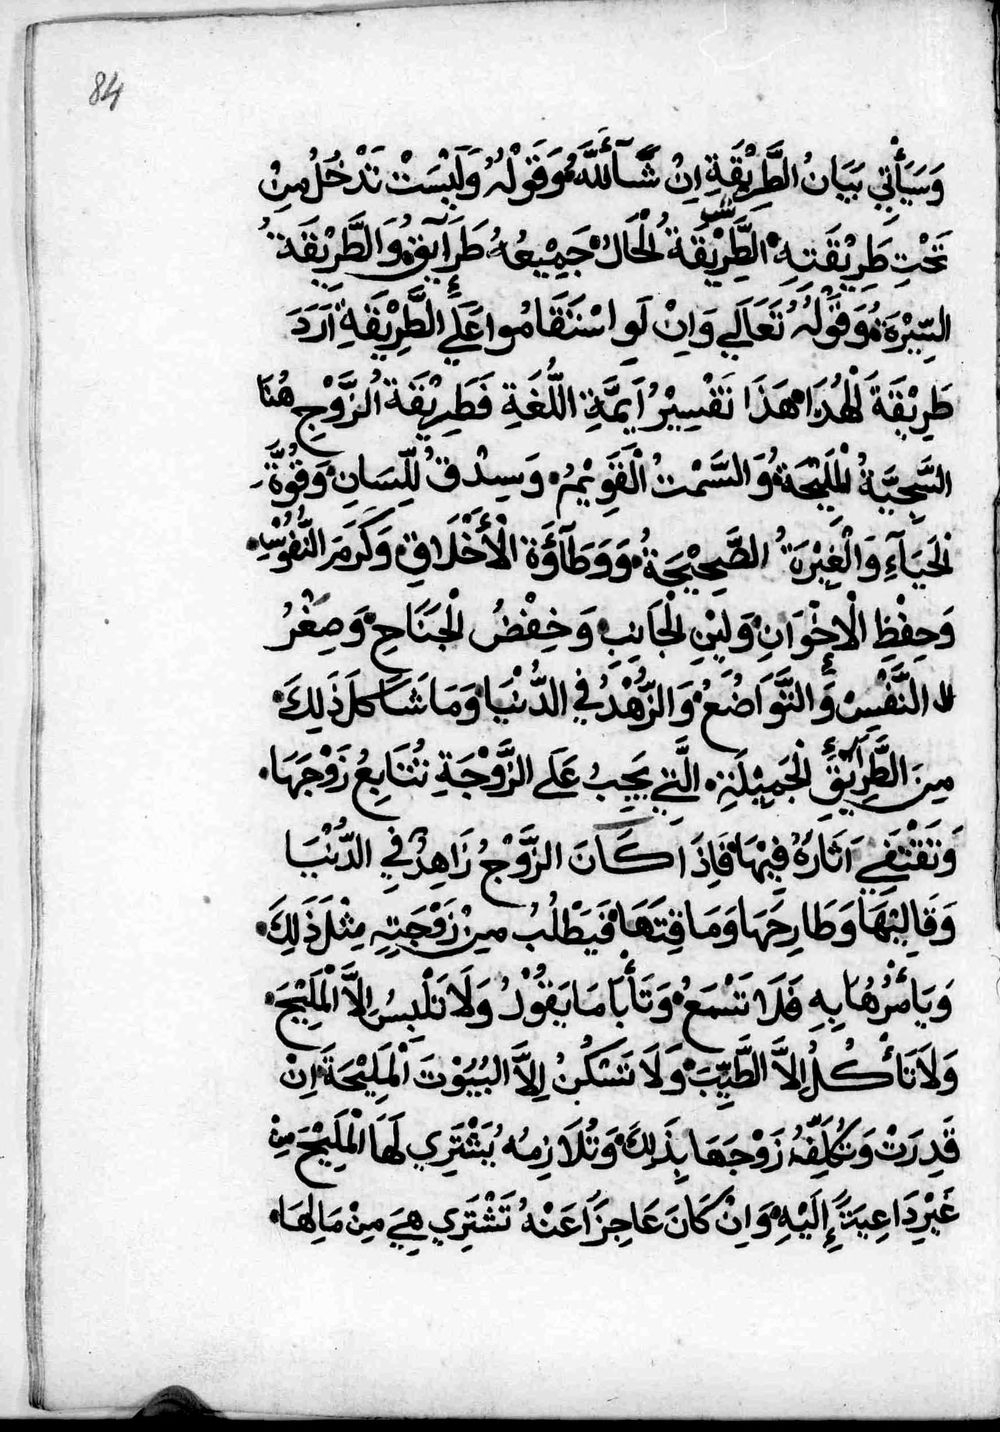 84
وَسَيَأْتِي بَيَانُ الطَّرِيْقَةِ اِنْ شَآءَ اللَّهُ وَقَوْلُهُ وَلَيْسَتْ تَدْخُلُ مِنْ
تَحْتِ طَرِيْقَتِهِ الطَّرِيْقَةُ الْحَالُ جَمِيْعُهُ طَرَآيِقُ وَالطَّرِيْقَةُ
السِّيْرَةُ وَقَوْلُهُ تَعَالَي وَاِنْ لَوِ اسْتَقَامُوا عَلَي الطَّرِيْقَةِ اَرَدَ
طَرِيْقَةَ الْهُدَا هَذَا تَفْسِيْرُ اَيِمَّةِ اللُّغَةِ فَطَرِيْقَةُ الزَّوْجِ هُنَا
السَّجِيَّةُ الْمَلِيْحَةُ وَالسَّمْتُ الْقَوِيْمُ وَسِدْقُ اللِّسَانِ وَقُوَّةُ
الْحَيَآءِ وَالْغِيْرَةُ الصَّحِيْحَةُ وَوَطَآؤَةُ الْأَخْلَاقِ وَكَرَمَ النُّفُوْسِ
وَحِفْظِ الْاِخْوَانِ وَلِيْنِ الْجَانِبِ وَخِفْضُ الْجَنَاحِ وَصِغْرُ
النَّفْسِ وَالتَّوَاضُعُ وَالزُّهْدُ فِي الدُّنْيَا وَمَا شَاكَلَ ذَلِكَ
مِنَ الطَّرَآيِقِ الْجَمِيْلَةِ الَّتِي يَجِبُ عَلَي الزَّوْجَةِ تُتَابِعُ زَوْجَهَا
وَتَقْتَفِي اَثَارَهُ فِيْهَا فَاِذَا كَانَ الزَّوْجُ زَاهِدٌ فِي الدُّنْيَا
وَقَالِيْهَا وَطَارِحَهَا وَمَاقِتَهَا فَيَطْلُبُ مِنْ زَوْجَتِهِ مِثْلَ ذَلِكَ
وَيَاْمُرُهَا بِهِ فَلَا تَسْمَعُ وَتَأْبَا مَا يَقُوْلُ وَلَا تَلْبِسُ اِلَّا الْمَلِيْحَ
وَلَا تَأْكُلُ اِلَّا الطَّيِّبَ وَلَا تَسْكُنُ اِلَّا الْبُيُوْتَ الْمَلِيْحَةَ اِنْ
قَدِرَتْ وَتُكَلِّفُ زَوْجَهَا بِذَلِكَ وَتُلَازِمُهُ يَشْتَرِي لَهَا الْمَلِيْحَ مِنْ
غَيْرِ دَاعِيَةً إِلَيْهِ وَاِنْ كَانَ عَاجِزًا عَنْهُ تَشْتَرِي هِيَ مِنْ مَالِهَا